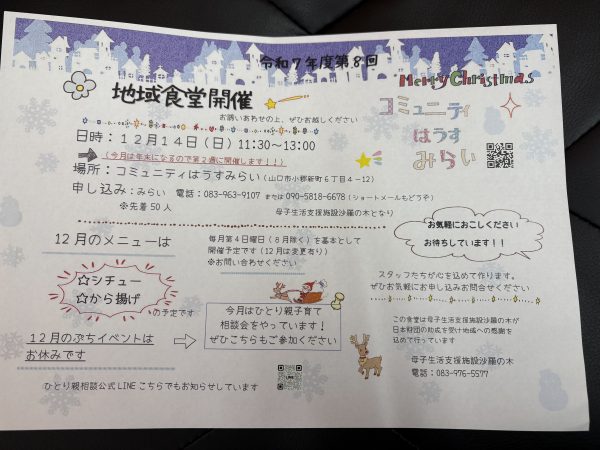 令和7年度第8回
Merry Christmas
地域食堂開催
お誘いあわせの上、ぜひお越しください
コミュニティ
はうす
みらい
日時：１２月１４日（日）11:30～13:00
（今月は年末になるので第２週に開催します！！！）
場所：コミュニティはうすみらい（山口市小郡新町６丁目４－12）
申し込み：みらい　電話：083-963-9107 または 090-5818-6678（ショートメールもどうぞ）
※先着50人
母子生活支援施設沙羅の木となり
お気軽におこしください
お待ちしています！！
12月のメニューは
毎月第４日曜日（８月除く）を基本として
開催予定です（12月は変更有り）
※お問い合わせください
☆シチュー
☆から揚げ
の予定です
スタッフたちが心を込めて作ります。
ぜひお気軽にお申し込みお問合せください
今月はひとり親子育て
相談会をやっています！
ぜひこちらもご参加ください
12月のぷちイベントは
お休みです
この食堂は母子生活支援施設沙羅の木が
日本財団の助成を受け地域への感謝を
込めて行っています
母子生活支援施設沙羅の木
電話：083-976-5577
ひとり親相談公式LINEこちらでもお知らせしています